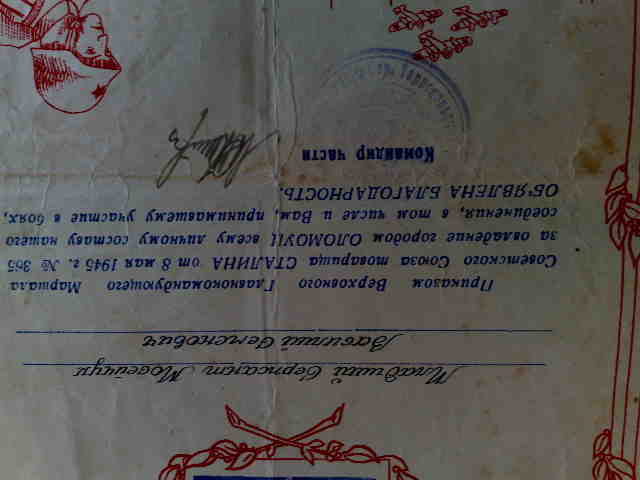 Младший Сержант Мосейчук
Василий Семенович
Приказом Верховного Главнокомандующего Маршала
Советского Союза товарища СТАЛИНА от 8 мая 1945 г. № 365
за овладение городом ОЛОМОУЦ всему личному составу нашего
соединения, в том числе и Вам, принимавшему участие в боях,
ОБ'ЯВЛЕНА БЛАГОДАРНОСТЬ.
Командир части